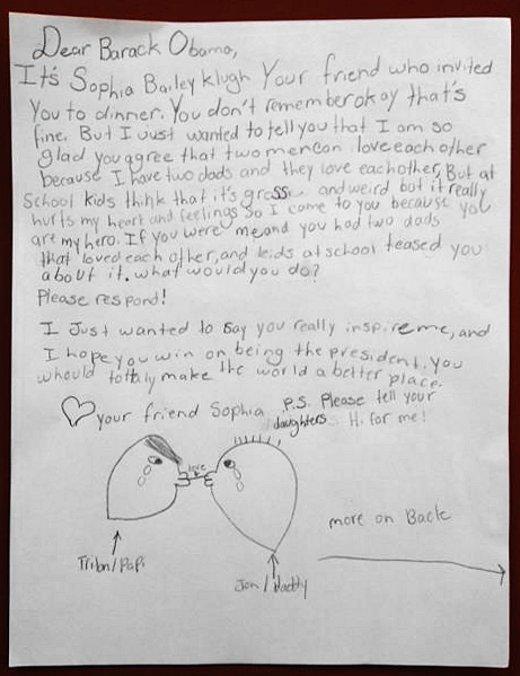 Dear Barack Obama,
It's Sophia Bailey klugh Your friend who invited
You to dinner. You don't remember okay that's
fine. But I Just wanted to tell you that I am so
glad you agree that two men can love each other
because I have two dads and they love each other, But at
School kids think that it's grass and weird but it really
hurts my heart and feelings So I come to you because you
are my hero. If you were me and you had two dads
that loved each other, and kids at school teased you
about it. what would you do?
Please respond!
I Just wanted to say you really inspire me, and
I hope you win on being the president. you
whould tottaly make the world a better place.
your friend Sophia P.S. Please tell your
daughters Hi for me!
love
more on Back
/Papi
Jon / daddy